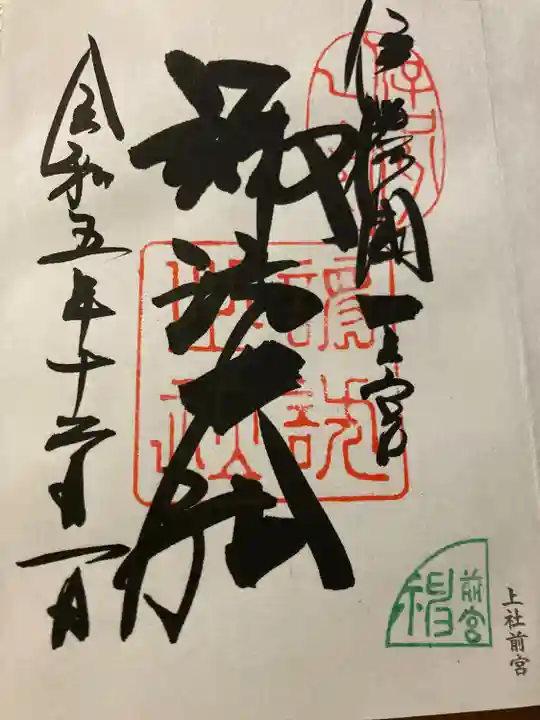 信濃國一之宮
諏訪大社
令和五年十二月一日
前宮
上社前宮